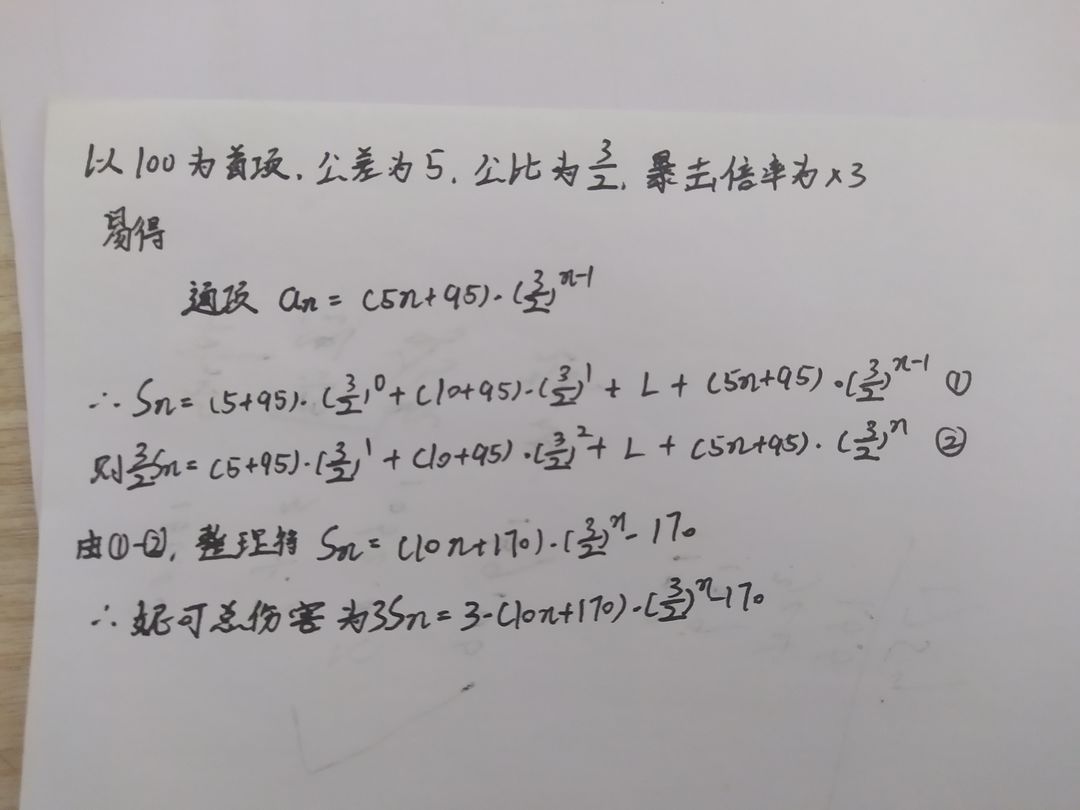 以100为首项, 公差为5, 公比为3/2, 暴击倍率为×3
易得
通项 aₙ = (5n+95)·(3/2)ⁿ⁻¹
∴ Sₙ = (5+95)·(3/2)⁰ + (10+95)·(3/2)¹ + L + (5n+95)·(3/2)ⁿ⁻¹ ①
则 3/2 Sₙ = (5+95)·(3/2)¹ + (10+95)·(3/2)² + L + (5n+95)·(3/2)ⁿ ②
由①-②, 整理得 Sₙ = (10n+170)·(3/2)ⁿ - 170
∴ 可总伤害为3Sₙ = 3·(10n+170)·(3/2)ⁿ - 170